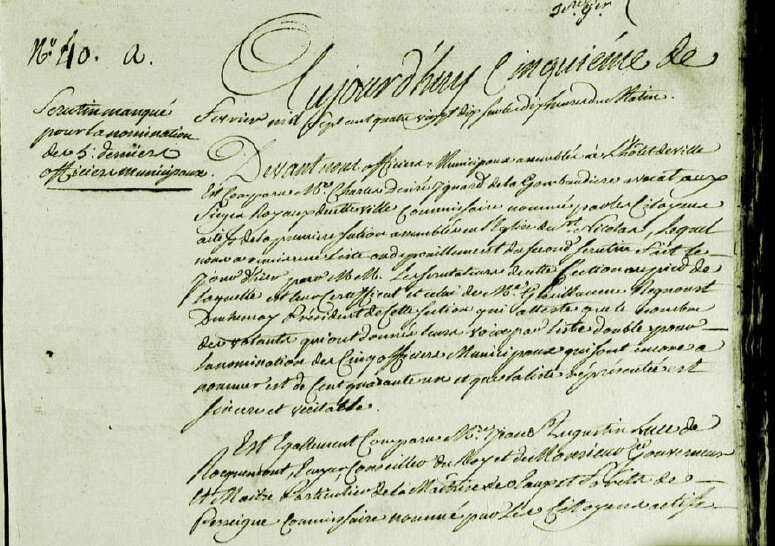 N.° 40. a.
Scrutin manqué
pour la nomination
de 5. derniers
officiers municipaux.
Aujourd'huy Cinquiéme de
Fevrier mil Sept cent quatre vingt dix sur les dix heures du Matin.
Devant nous officiers Municipaux assemblés à L'hôtel de ville
Est Comparu M.re Charles desiré de la Gombaudiere avocat aux
Sieges Royaux de cette ville Commissaire nommé par les Citoyens
actifs de la premiere Section assemblée en l'Eglise de St. Nicolas, Lequel
nous a remis une liste au depouillement du Second Scrutin fait le
jour d'hier par M.M. Les Scrutateurs de cette Section au pied de
laquelle est leur Certifficat et celui de M.re Guillaume
President de Cette Section qui atteste que le nombre
des votants qui ont donnés leurs voix par liste double pour
la nomination des Cinq officiers Municipaux qui sont encore a
nommer est de Cent quarante un et que la liste représentée est
Sincere et veritable.
Est Egallement Comparu M.re Augustin de
Conseiller du Roy et de Monsieur Gouverneur
et Maitre Particulier de la Maitrise de
Perseigne Commissaire nommé par Les Citoyens actifs